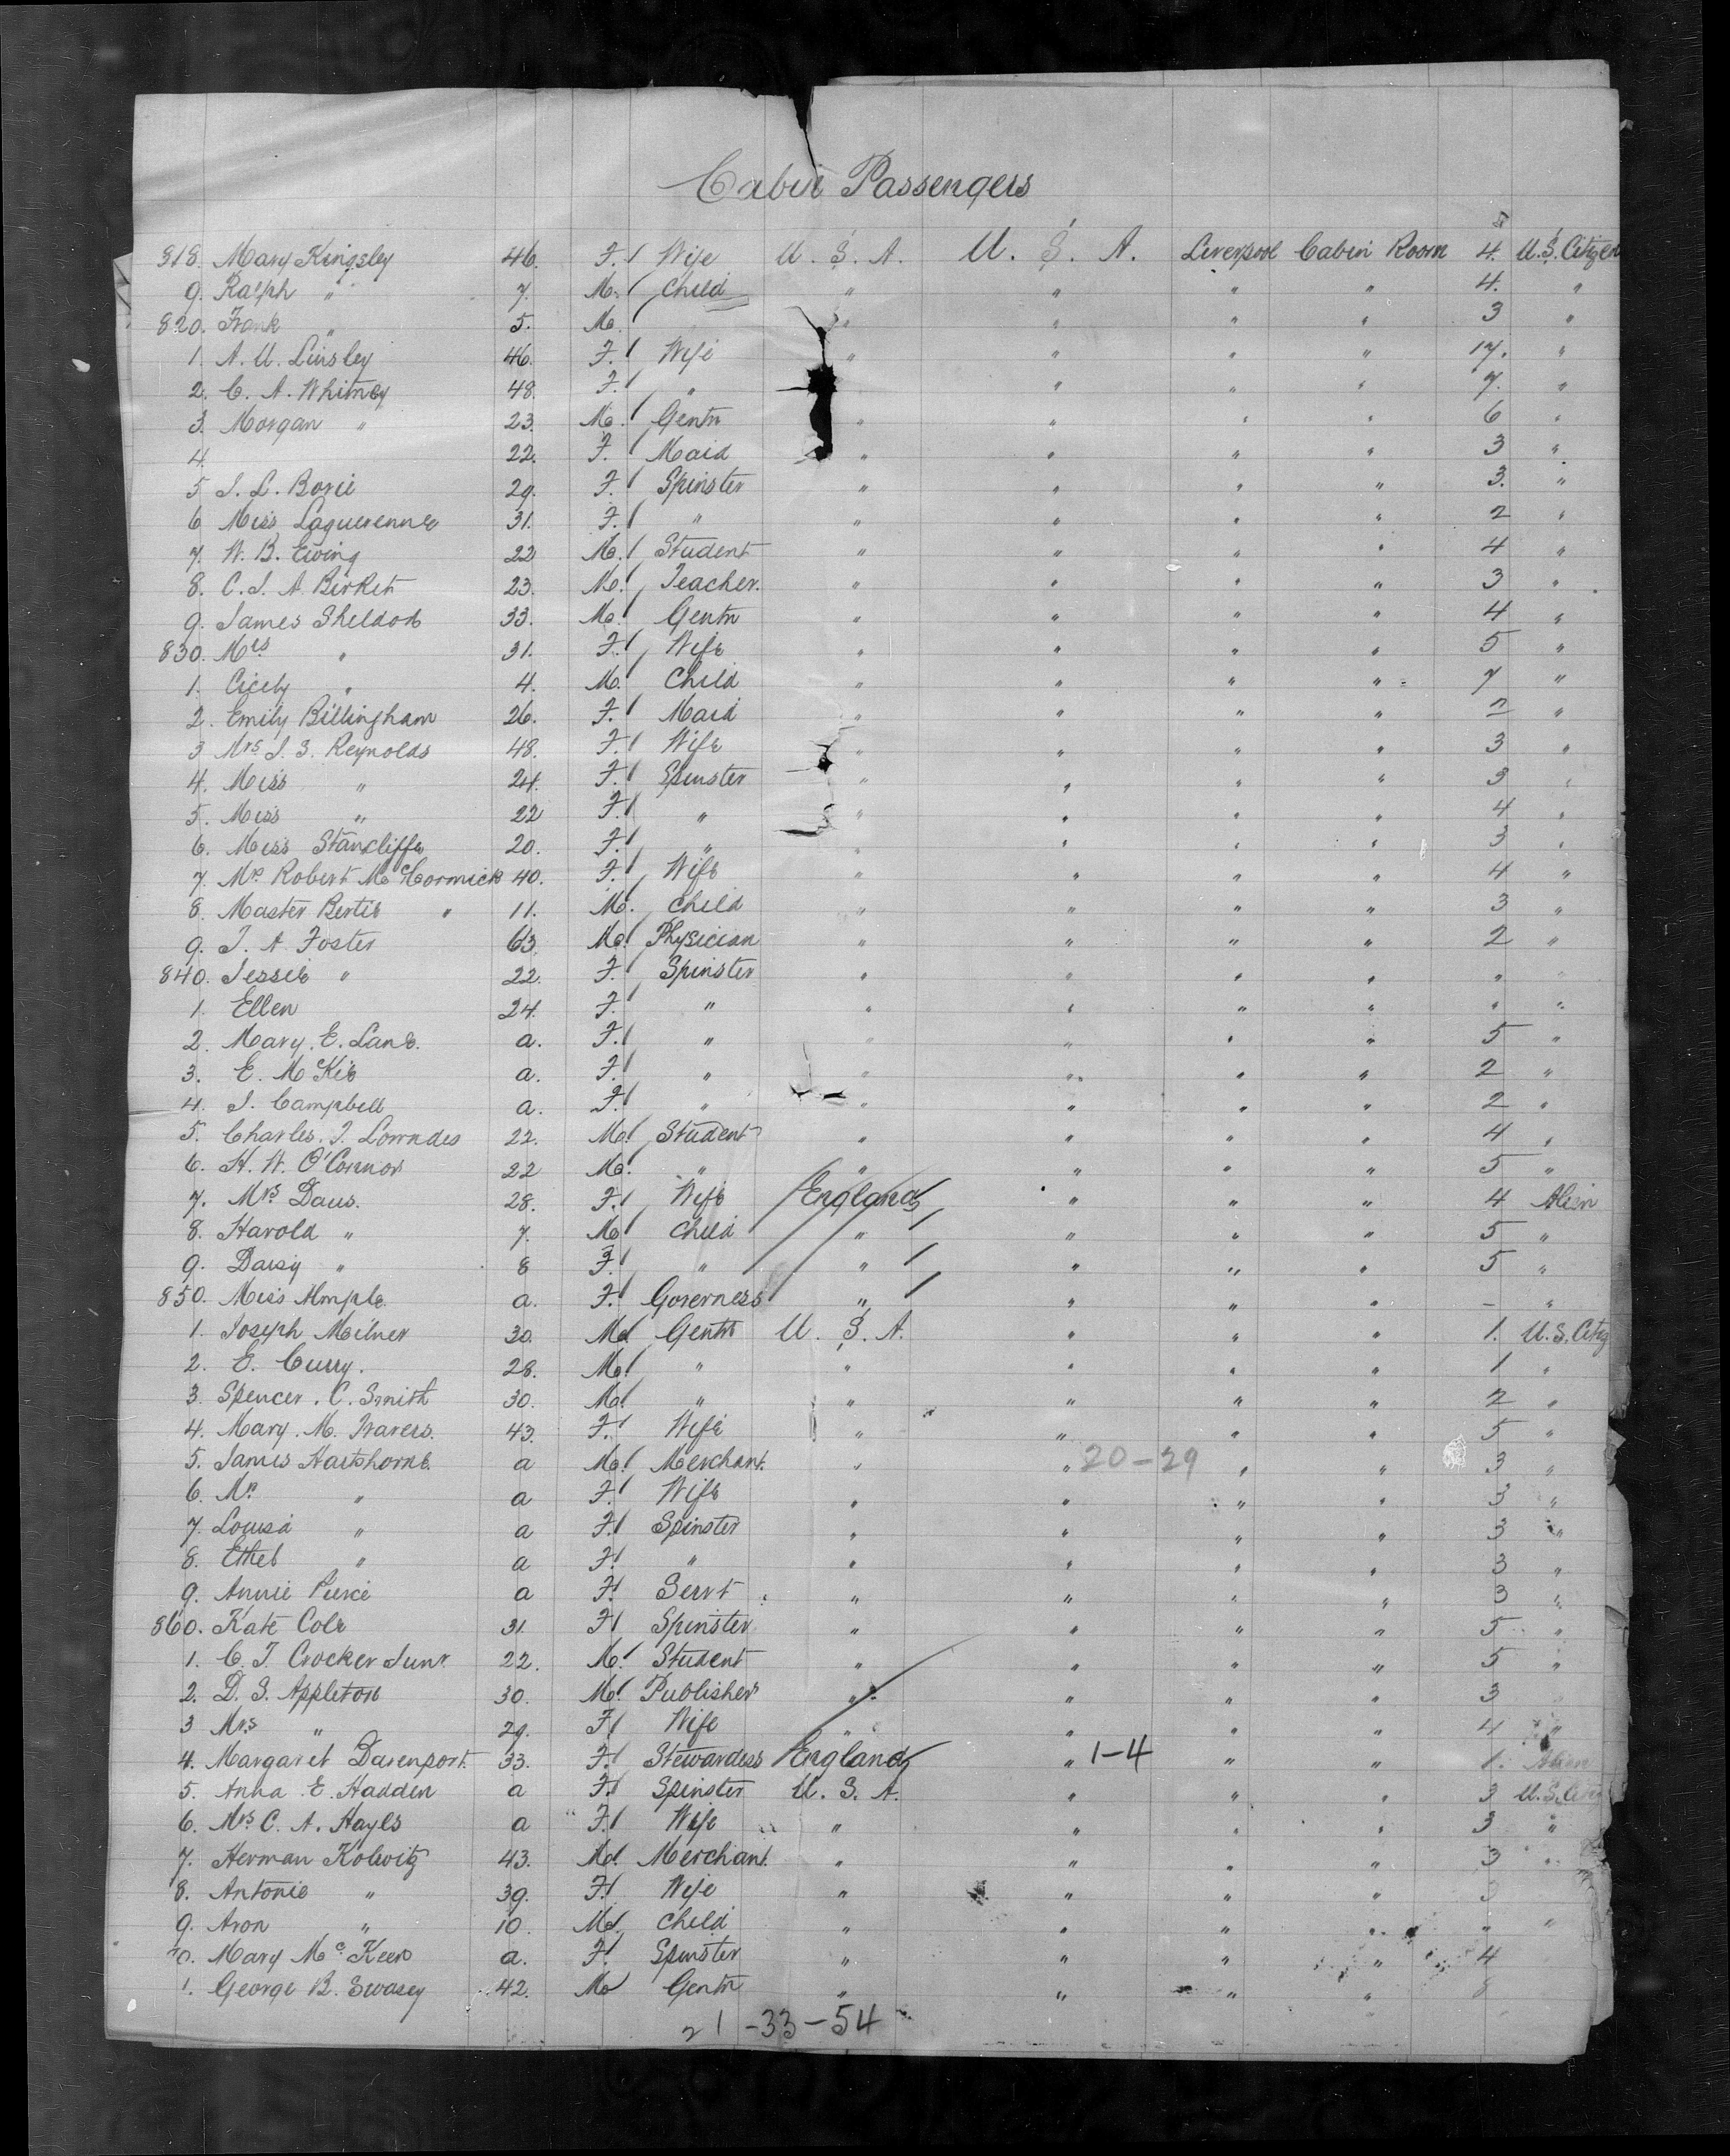 Cabin Passengers
818. Mary Kingsley 46. F. Wife U. S. A. U. S. A. Liverpool Cabin Room 4. U.S. Citizen
9. Ralph " 7. M. Child " " " " 4. "
820. Frank " 5. M. " " " " 3 "
1. A. U. Linsley 46. F. Wife " " " " 17. "
2. C. A. Whitney 48. F. " " " " 7. "
3. Morgan " 23. M. Gentn " " " " 6 "
4. 22. F. Maid " " " " 3 "
5 J. L. Borie 29. F. Spinster " " " " 3. "
6 Miss Laguerenne 31. F. " " " " " 2 "
7. W. B. Ewing 22 M. Student " " " " 4 "
8. C. J. A. Birket 23. M. Teacher. " " " " 3 "
9. James Sheldon 33. M. Gentn " " " " 4 "
830. Mrs " 31. F. Wife " " " " 5 "
1. Cicely " 4. M. Child " " " " 7 "
2. Emily Billingham 26. F. Maid " " " " 2 "
3 Mrs J. S. Reynolds 48. F. Wife " " " " 3 "
4. Miss " 24. F. Spinster " " " " 3 "
5. Miss " 22 F. " " " " " 4 "
6. Miss Stancliffe 20. F. " " " " " 3 "
7. Mrs Robert McCormick 40. F. Wife " " " " 4 "
8. Master Bertie " 11. M. Child " " " " 3 "
9. J. A. Foster 63. M. Physician " " " " 2 "
840. Jessie " 22. F. Spinster " " " " " "
1. Ellen 24. F. " " " " " " "
2. Mary. E. Lane. a. F. " " " " " 5 "
3. E. McKie a. F. " " " " " 2 "
4. J. Campbell a. F. " " " " " 2 "
5. Charles. T. Lowndes 22. M. Student " " " " 4 "
6. H. W. O'Connor 22 M. " " " " " 5 "
7. Mrs Daus. 28. F. Wife England " " " 4 Alien
8. Harold " 7. M. Child " " " " 5 "
9. Daisy " 8 F. " " " " " 5 "
850. Miss a. F. Governess " " " " - "
1. Joseph Milner 30. M. Gentn U. S. A. " " " 1. U.S. Citz
2. E. Curry. 28. M. " " " " " 1 "
3. Spencer. C. Smith 30. M. " " " " " 2 "
4. Mary. M. Travers. 43. F. Wife " " " " 5 "
5. James Hartshorne. a M. Merchant. " " 20-29 " " 3 "
6. Mrs " a F. Wife " " " " 3 "
7. Louisa " a F. Spinster " " " " 3 "
8. Ethel " a F. " " " " " 3 "
9. Annie Pierce a F. Servt " " " " 3 "
860. Kate Cole 31. F. Spinster " " " " 5 "
1. C. T. Crocker Junr. 22. M. Student " " " " 5 "
2. D. S. Appleton 30. M. Publisher " " " " 3
3 Mrs " 29. F. Wife " " " " 4 "
4. Margaret Davenport. 33. F. Stewardess England " 1-4 " " 1. Alien
5. Anna E. Hadden a F. Spinster U. S. A. " " " 3 U.S. Citz
6. Mrs C. A. Hayes a F. Wife " " " " 3 "
7. Herman Kolwitz 43. M. Merchant. " " " " 3 "
8. Antonie " 39. F. Wife " " " " 3
9. Aron " 10. M. Child " " " " " "
70. Mary McKeen a. F. Spinster " " " " 4
1. George B. Swasey 42. M. Gentn " " " " 8
21-33-54